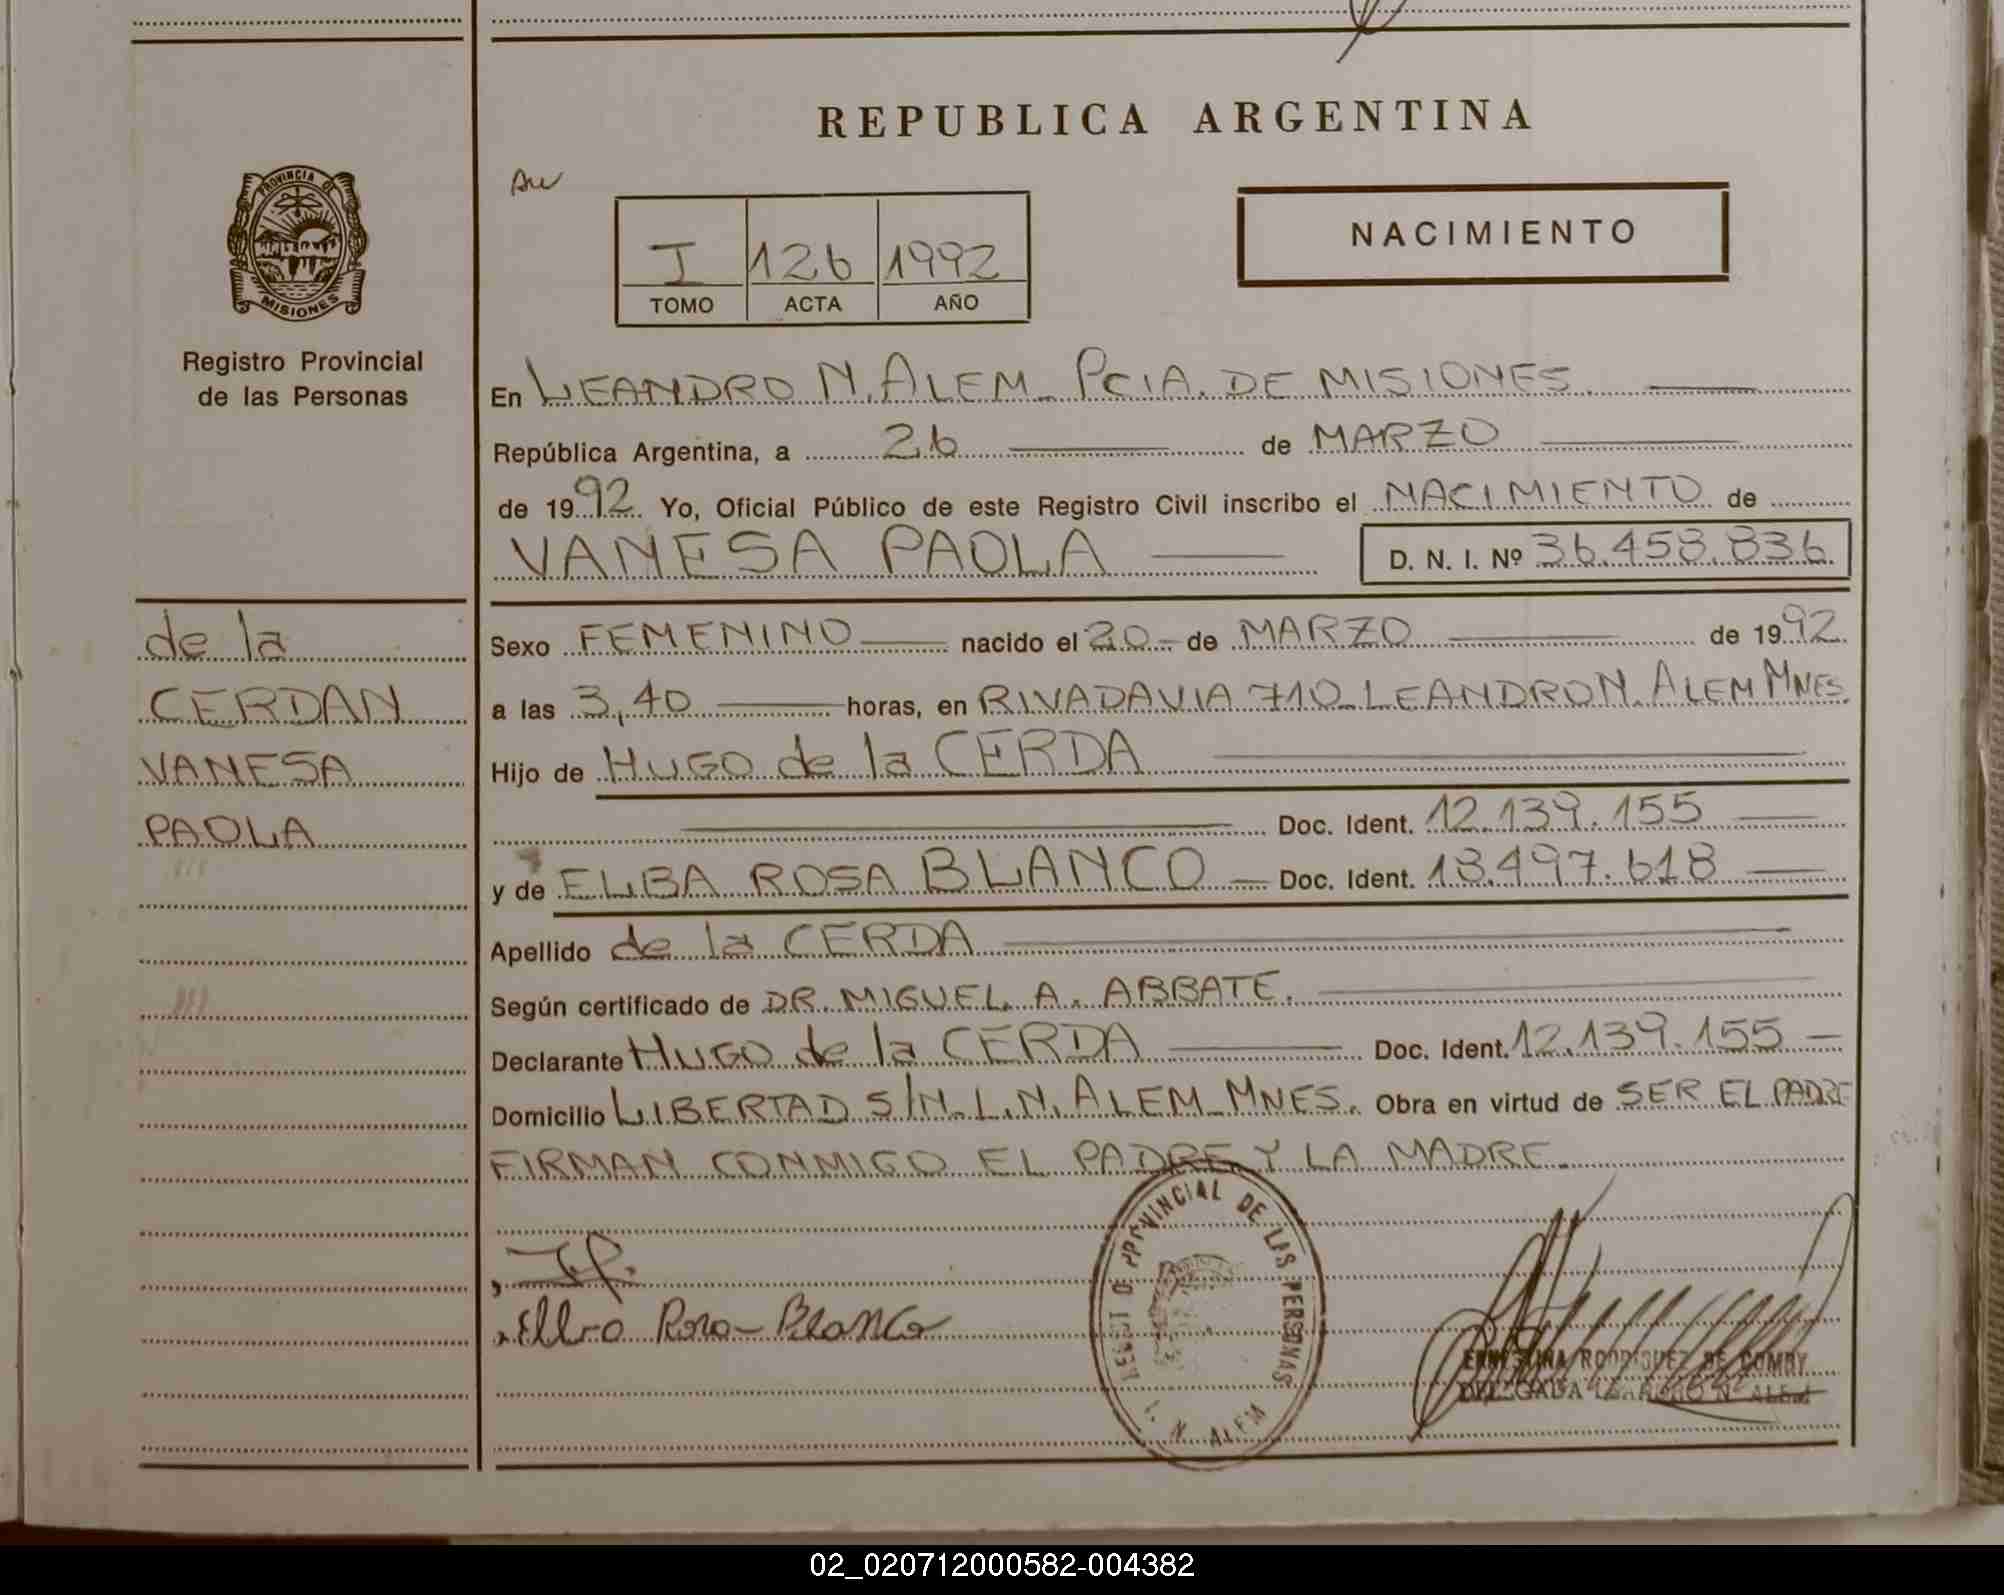 REPUBLICA ARGENTINA
PROVINCIA DE
MISIONES
Registro Provincial
de las Personas
I 126 1992
TOMO ACTA AÑO
NACIMIENTO
En LEANDRO N. ALEM PCIA. DE MISIONES.
República Argentina, a 26 de MARZO
de 1992. Yo, Oficial Público de este Registro Civil inscribo el NACIMIENTO de
VANESA PAOLA D. N. I. Nº 36.458.836.
de la
CERDAN
VANESA
PAOLA
Sexo FEMENINO nacido el 20 de MARZO de 1992.
a las 3,40 horas, en RIVADAVIA 710 LEANDRO N. ALEM MNES.
Hijo de HUGO de la CERDA
Doc. Ident. 12.139.155
y de ELBA ROSA BLANCO Doc. Ident. 13.497.618
Apellido de la CERDA
Según certificado de DR. MIGUEL A. ABBATE.
Declarante HUGO de la CERDA Doc. Ident. 12.139.155
Domicilio LIBERTAD S/N. L.N. ALEM MNES. Obra en virtud de SER EL PADRE
FIRMAN CONMIGO EL PADRE Y LA MADRE.
PROVINCIAL DE LAS PERSONAS
L. N. ALEM
Elba Rosa Blanco
ERNESTINA RODRIGUEZ DE COMBY
DELEGADA LEANDRO N. ALEM
02_020712000582-004382